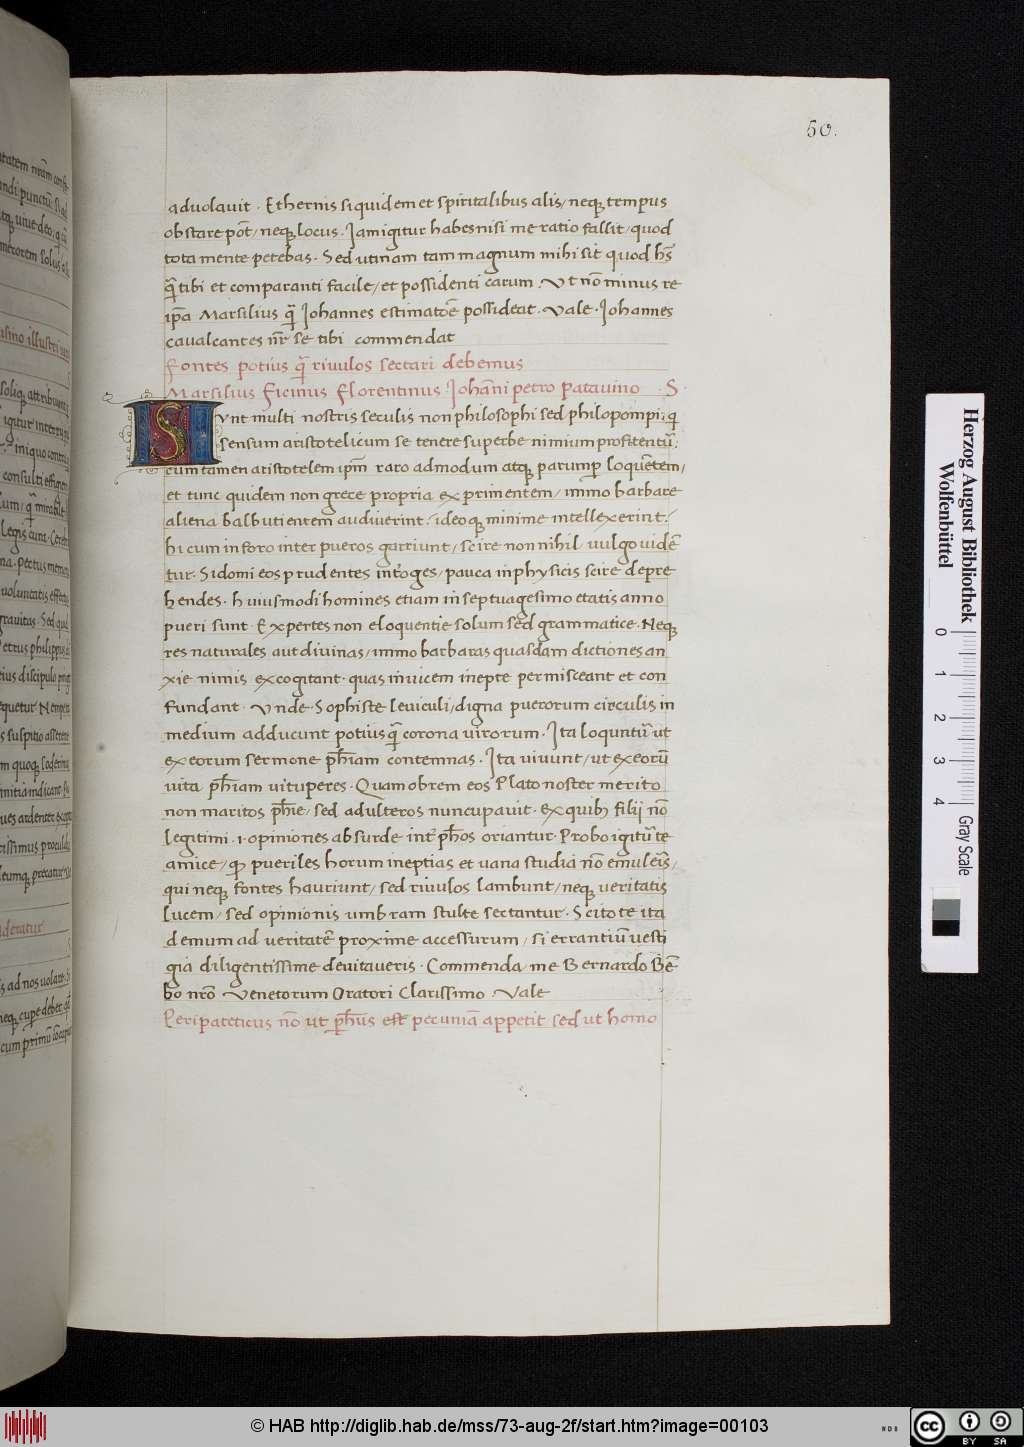 50.
advolavit . Ethernis siquidem et spiritalibus alis / neq; tempus
obstare põt / neq; locus . Iam igitur habes nisi me ratio fallit / quod
tota mente petebas . Sed utinam tam magnum mihi sit quod hẽs
q̃ tibi et comparanti facile / et possidenti carum . Vt nõ minus re
ip̃a Marsilius q̃ Iohannes estimatõe possideat . Vale . Iohannes
cavalcantes nr̃ se tibi commendat
Fontes potius q̃ rivulos sectari debemus
Marsilius Ficinus Florentinus Iohãni petro patavino . S .
SVnt multi nostris seculis non philosophi sed philopompi ; q̃
sensum aristotelicum se tenere superbe nimium profitentũ ;
cum tamen aristotelem ip̃m raro admodum atq; parump̱ loquẽtem /
et tunc quidem non grece propria exprimentem / immo barbare
aliena balbutientem audiverint . ideoq; minime intellexerint .
hi cum in foro inter pueros garriunt / scire non nihil . vulgo vidẽ
tur . Si domi eos prudentes int̃oges / pauca in physicis scire depre
hendes . huiusmodi homines etiam in septuagesimo etatis anno
pueri sunt . Expertes non eloquentie solum sed grammatice . Neq;
res naturales aut divinas / immo barbaras quasdam dictiones an
xie nimis excogitant . quas invicem inepte permisceant et con
fundant . Vnde . Sophiste leviculi / digna puerorum circulis in
medium adducunt potius q̃ corona virorum . Ita loquntũ ut
ex eorum sermone ph̃iam contemnas . Ita vivunt / ut ex eorũ
vita ph̃iam vituperes . Quam obrem eos Plato noster merito
non maritos ph̃ie / sed adulteros nuncupavit . ex quib; filii nõ
legitimi . i . opiniones absurde int̃ ph̃os oriantur . Probo igitũ te
amice / qp̱ pueriles horum ineptias et vana studia nõ emulẽis /
qui neq; fontes hauriunt / sed rivulos lambunt / neq; veritatis
lucem / sed opinionis umbram stulte sectantur . Scito te ita
demum ad veritatẽ proxime accessurum / si errantiũ vesti
gia diligentissime devitaveris . Commenda me Bernardo Bẽ
bo nrõ Venetorum Oratori Clarissimo . Vale
Peripateticus nõ ut ph̃us est pecuniam appetit sed ut homo
Herzog August Bibliothek
Wolfenbüttel
0 1 2 3 4
Gray Scale
© HAB http://diglib.hab.de/mss/73-aug-2f/start.htm?image=00103
WDB
cc BY SA